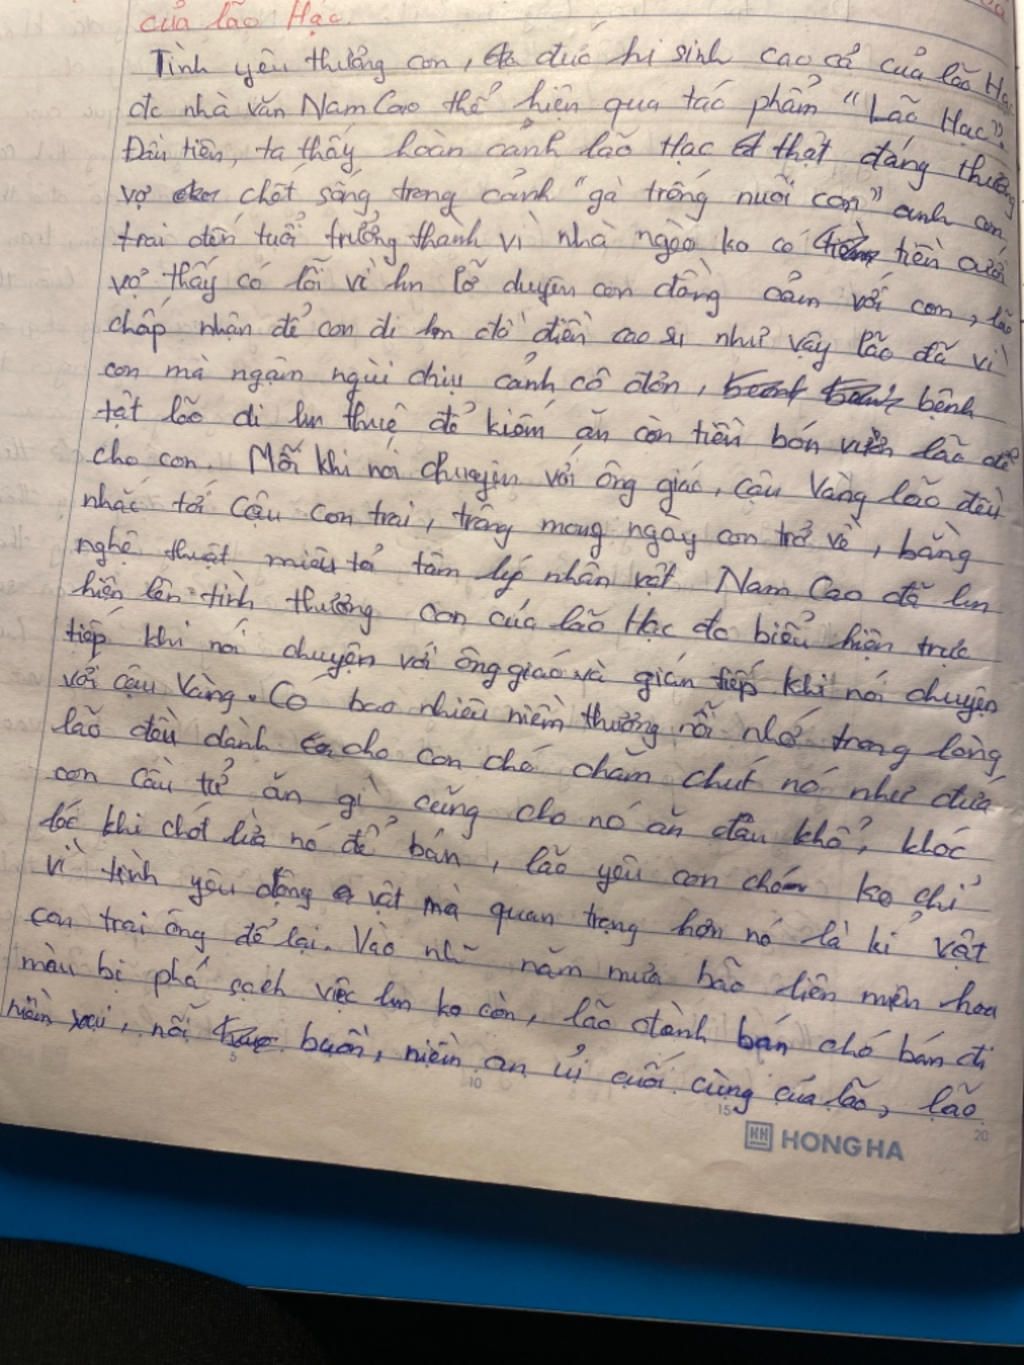 của lão Hạc.
Tình yêu thương con, đức hi sinh cao cả của lão Hạc
đc nhà văn Nam Cao thể hiện qua tác phẩm "Lão Hạc".
Đầu tiên, ta thấy hoàn cảnh lão Hạc thật đáng thương
vợ chết sống trong cảnh "gà trống nuôi con" anh con
trai đến tuổi trưởng thành vì nhà ngèo ko có tiền cưới
vợ thấy có lỗi vì lm lỡ duyên con đồng cảm với con, lão
chấp nhận để con đi lm đồ điền cao su như vậy lão đã vì
con mà ngậm ngùi chịu cảnh cô đơn, bệnh
tật lão đi lm thuê để kiếm ăn còn tiền bán vườn lão để
cho con. Mỗi khi nói chuyện với ông giáo, cậu Vàng lão đều
nhắc tới cậu con trai, trông mong ngày con trở về, bằng
nghệ thuật miêu tả tâm lý nhân vật Nam Cao đã lm
hiện lên tình thương con của lão Hạc đc biểu hiện trực
tiếp khi nói chuyện với ông giáo và gián tiếp khi nói chuyện
với cậu Vàng. Có bao nhiêu niềm thương nỗi nhớ trong lòng
lão đều dành cho con chó chăm chút nó như đứa
con cầu tử ăn gì cũng cho nó ăn đau khổ, khóc
lóc khi chót lừa nó để bán, lão yêu con chó ko chỉ
vì tình yêu động vật mà quan trọng hơn nó là kỉ vật
con trai ông để lại. Vào nh~ năm mưa bão liên miên hoa
màu bị phá sạch việc lm ko còn, lão đành bán chó bán đi
niềm vui, nỗi buồn, niềm an ủi cuối cùng của lão, lão
5 10 15 20
HH HONG HA